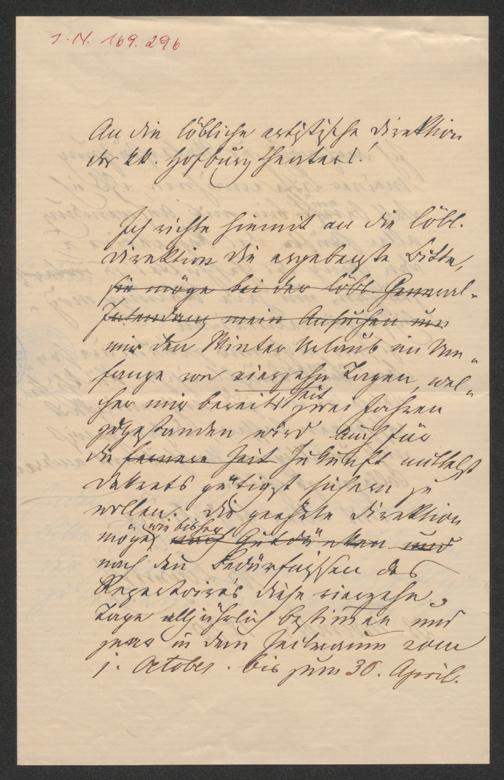 I. N. 169.296
An die löbliche artistische Direktion
der kk. Hofburgtheater's!
Ich richte hiemit an die löbl.
Direktion die ergebenste Bitte,
sie möge bei der löbl. General-
Intendanz mein Ansuchen um
mir den Winter Urlaub im Um-
fange von vierzehn Tagen, wel-
cher mir bereits seit zwei Jahren
zugestanden wird auch für
die fernere Zeit Zukunft mittelst
Dekrets gütigst sichern zu
wollen. Die geehrte Direktion
möge wie bisher nach Gutdünken und
nach den Bedürfnissen des
Repertoire's diese vierzehn
Tage alljährlich bestimmen und
zwar in dem Zeitraum vom
1. October. bis zum 30. April.